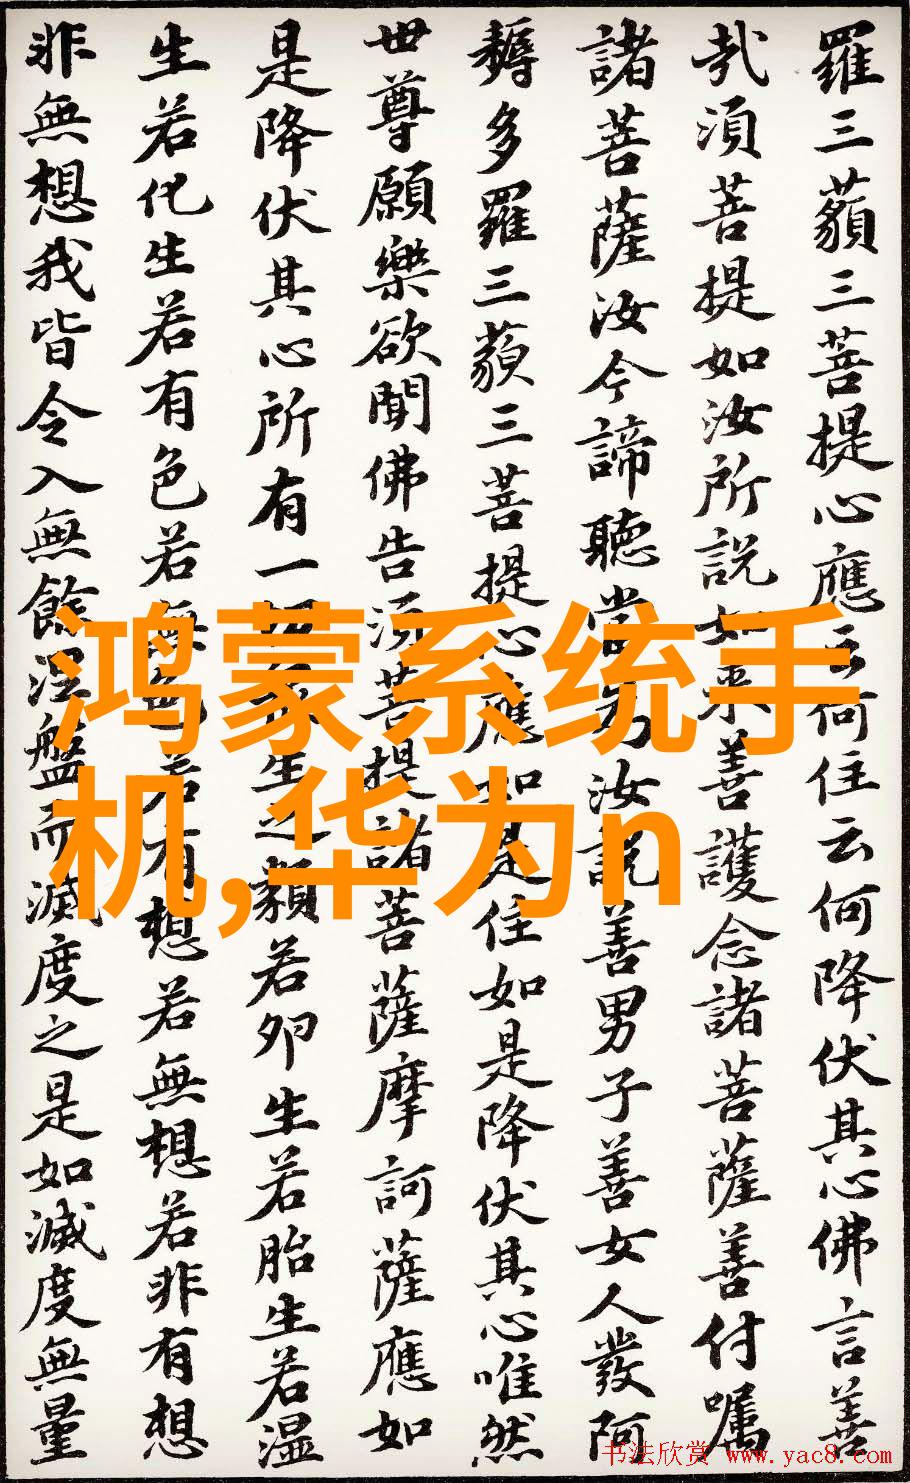 羅三藐三菩提心應云何住云何降伏其心佛言善
哉須菩提如汝所説如來善護念諸菩薩善付囑
諸菩薩汝今諦聽當為汝説善男子善女人發阿
耨多羅三藐三菩提心應如是住如是降伏其心唯然
世尊願樂欲聞佛告須菩提諸菩薩摩訶薩應如
是降伏其心所有一切眾生之類若卵生若胎生若湿
生若化生若有色若無色若有想若無想若非有想
非無想我皆令入無餘涅盤而滅度之是如滅度無量
鸿蒙系统手
机,华为n
书法欣赏 www.yac8.com